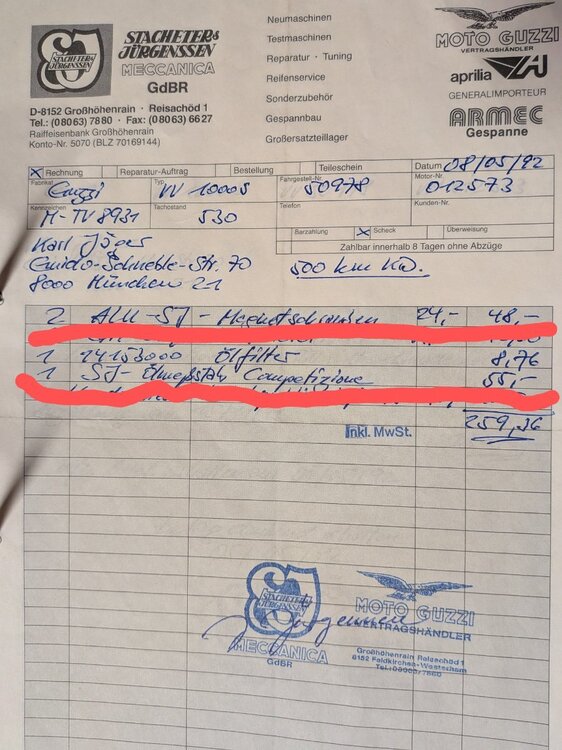 STACHETER &
JÜRGENSSEN
MECCANICA
GdBR
STACHETER &
JÜRGENSSEN
D-8152 Großhöhenrain · Reisachöd 1
Tel.: (08063) 7880 · Fax: (08063) 6627
Raiffeisenbank Großhöhenrain
Konto-Nr. 5070 (BLZ 70169144)
Neumaschinen
Testmaschinen
Reparatur · Tuning
Reifenservice
Sonderzubehör
Gespannbau
Großersatzteillager
MOTO GUZZI
VERTRAGSHÄNDLER
aprilia
GENERALIMPORTEUR
ARMEC
Gespanne
X Rechnung Reparatur-Auftrag Bestellung Teileschein Datum 08/05/92
Fabrikat Guzzi Typ 1000S Fahrgestell-Nr. 50978 Motor-Nr. 012573
Kennzeichen M-TV 8931 Tachostand 530 Telefon Kunden-Nr.
Barzahlung X Scheck Überweisung
Zahlbar innerhalb 8 Tagen ohne Abzüge
Karl Jäger
Guido-Schneble-Str. 70
8000 München 21
500 km KD.
2 ALU-SJ- 24,- 48,-
1 14153000 Ölfilter 8,76
1 SJ-Ölmeßstab Competizione 55,-
259,26
Inkl. MwSt.
STACHETER &
JÜRGENSSEN
MECCANICA
GdBR
MOTO GUZZI
VERTRAGSHÄNDLER
Großhöhenrain Reisachöd 1
8152 Feldkirchen-Westerham
Tel.: 08063/7880